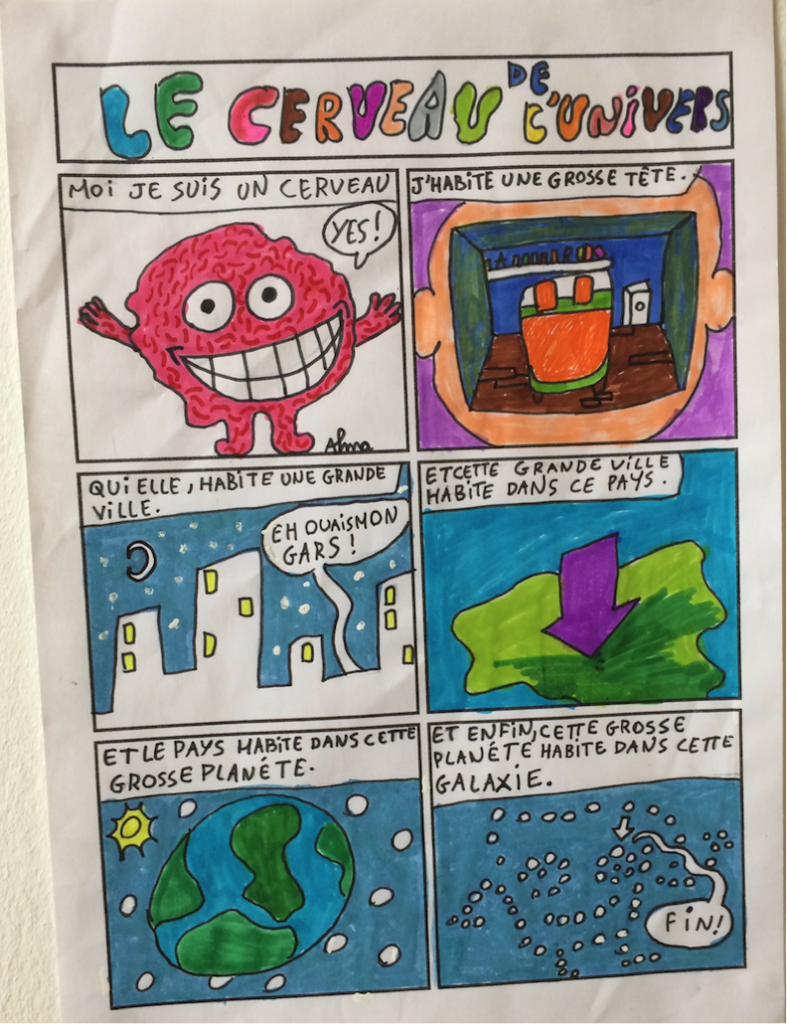 LE CERVEAU DE L'UNIVERS
MOI JE SUIS UN CERVEAU
YES!
Alma
J'HABITE UNE GROSSE TÊTE.
QUI ELLE, HABITE UNE GRANDE
VILLE.
EH OUAIS MON
GARS!
ET CETTE GRANDE VILLE
HABITE DANS CE PAYS.
ET LE PAYS HABITE DANS CETTE
GROSSE PLANÉTE.
ET ENFIN, CETTE GROSSE
PLANÉTE HABITE DANS CETTE
GALAXIE.
FIN!